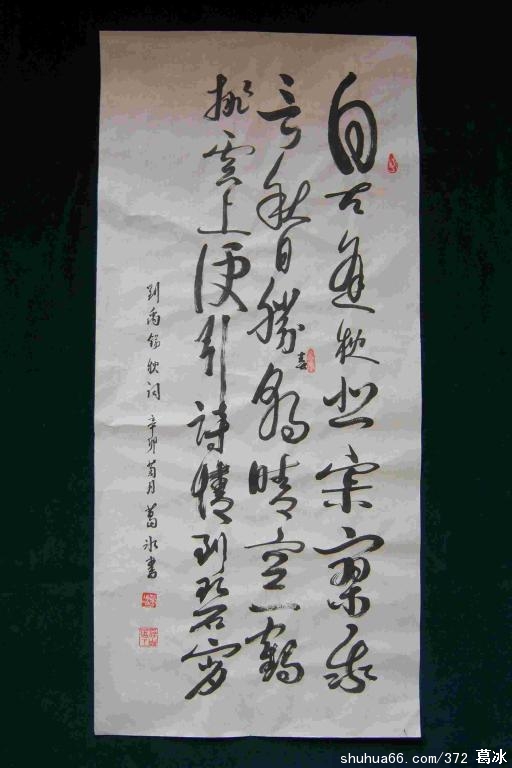 自古逢秋悲寂寥我
言秋日勝春朝晴空一鶴
排雲上便引詩情到碧霄
刘禹錫秋詞 辛卯菊月 葛冰書
shuhua66.com/372 葛冰